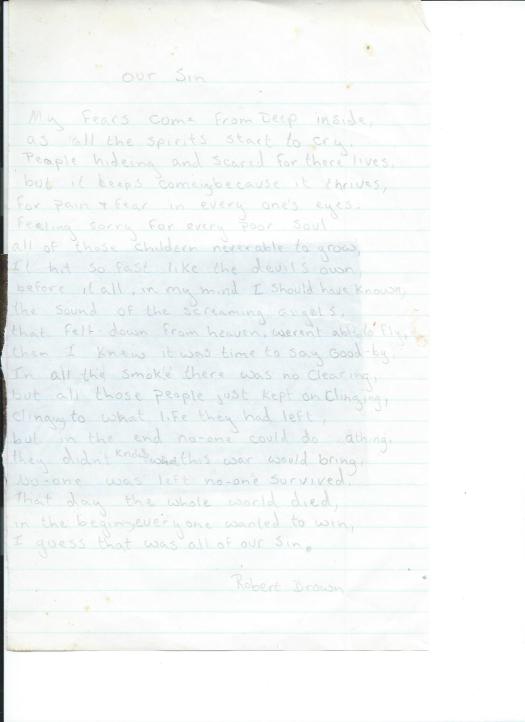 Our Sin
My Fears come from Deep inside,
as all the spirits start to cry.
People hideing and scared for there lives,
but it keeps comeing because it thrives,
For pain & fear in every one's eyes.
Feeling sorry for every poor soul
all of those childern never able to grow,
It hit so fast like the devil's own,
before it all, in my mind I should have known,
the sound of the screaming angels,
that fell down from heaven, werent able to fly,
then I knew it was time to say Good-by.
In all the smoke there was no clearing,
but all those people just kept on clinging,
clinging to what life they had left,
but in the end no-one could do athing.
they didnt know what this war would bring.
No-one was left no-one survived.
That day the whole world died,
in the begin, everyone wanted to win,
I guess that was all of our Sin.
Robert Brown